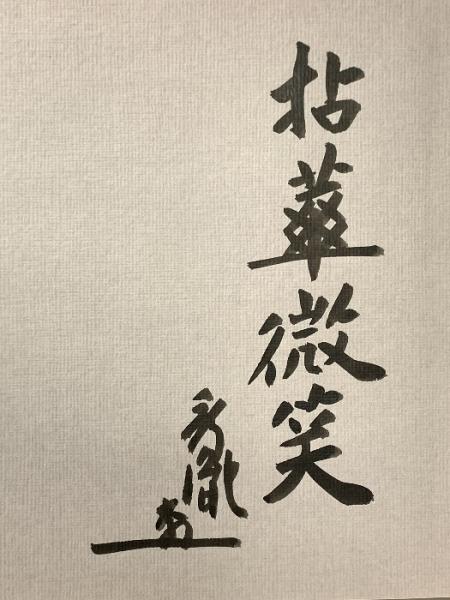 拈華微笑
胤